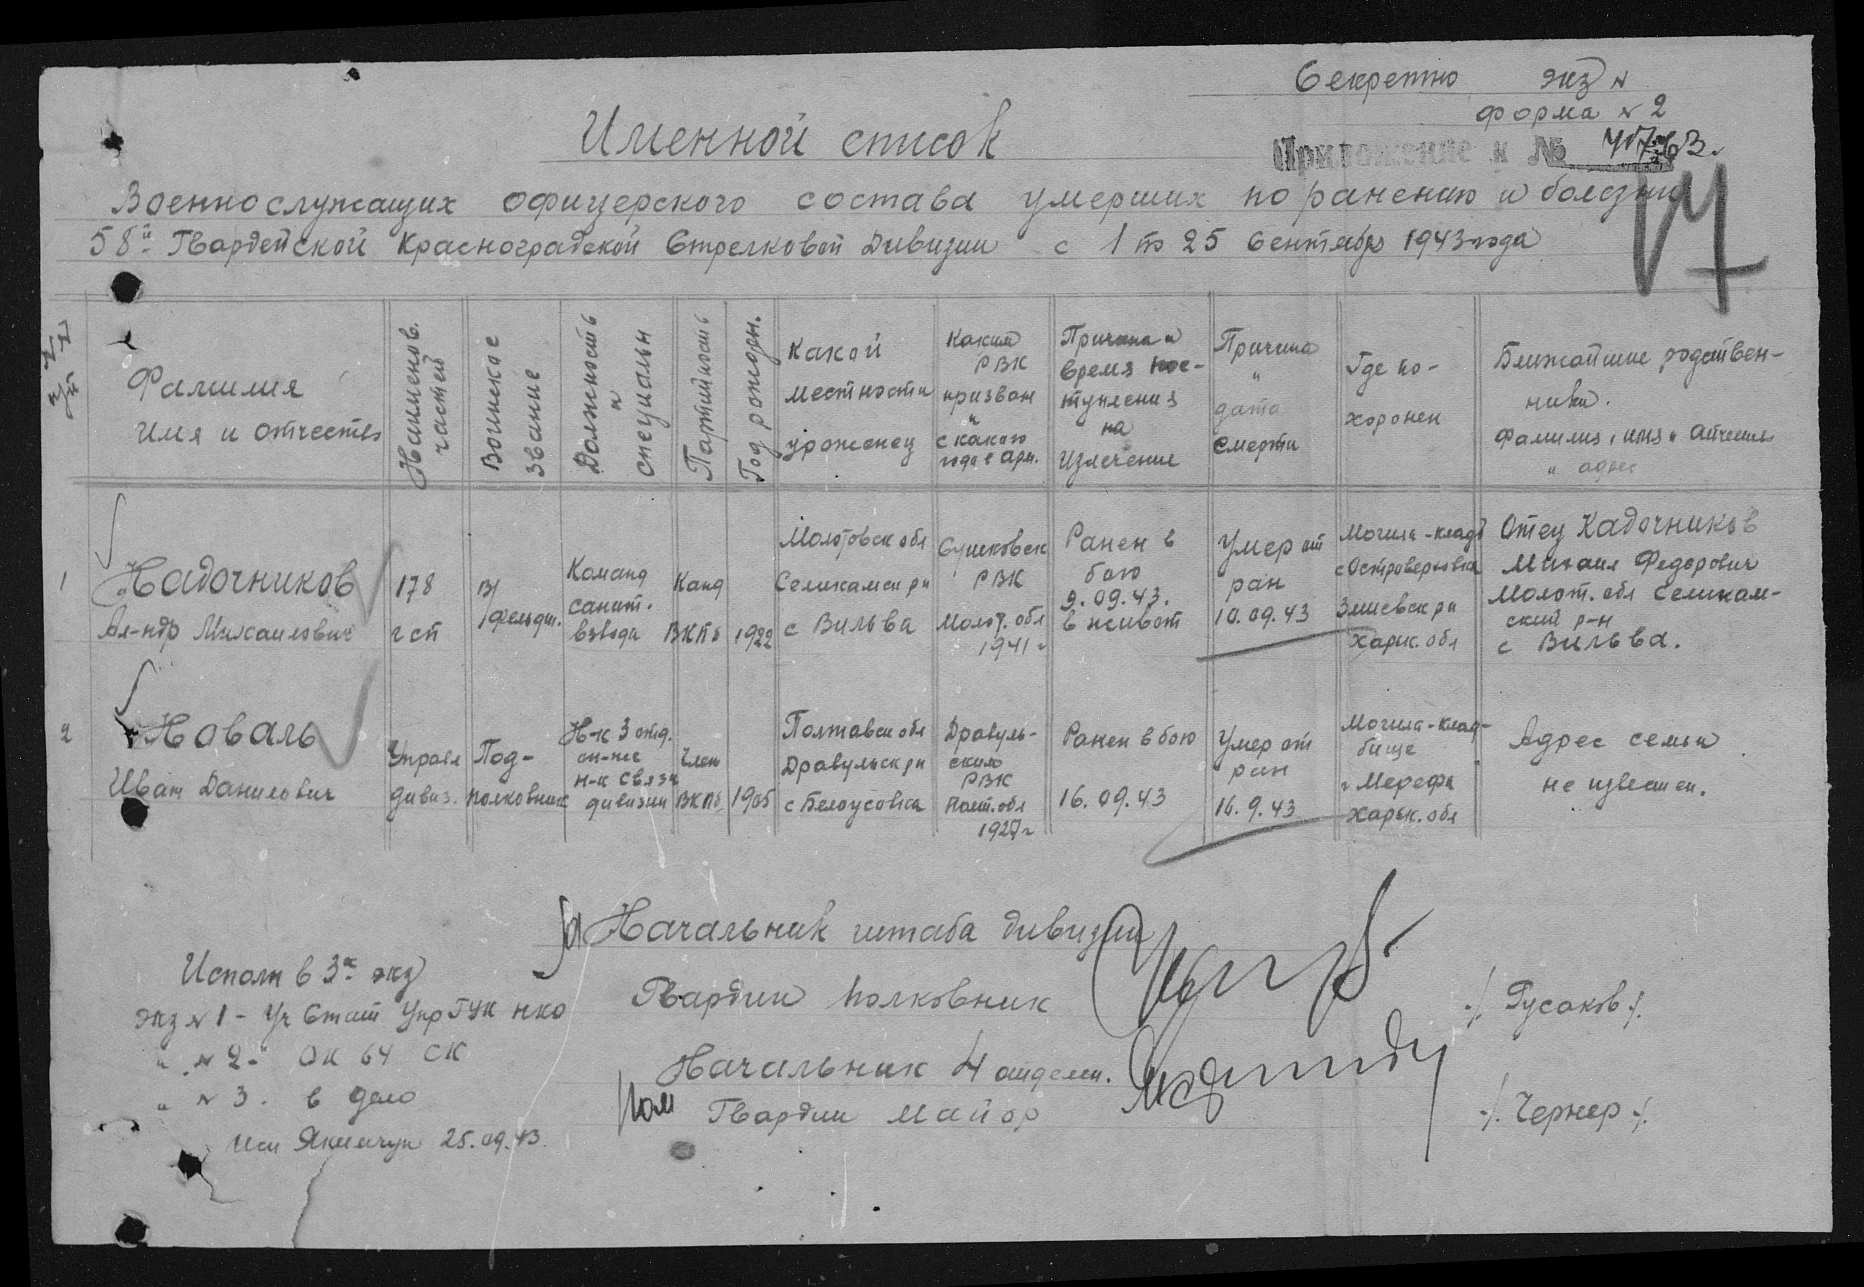 Секретно экз №
форма № 2
Приложение к №
Именной список
Военнослужащих офицерского состава умерших по ранению и болезни
58й Гвардейской Красноградской Стрелковой Дивизии с 1 по 25 Сентября 1943 года
№№ п/п
Фамилия
Имя и отчество
Наименов. частей
Воинское звание
Должность и специальн
Партийность
Год рожден.
Какой местности уроженец
Каким РВК призван и с какого года в арм.
Причина и время поступления на излечение
Причина и дата смерти
Где похоронен
Ближайшие родственники.
Фамилия, имя и отчество и адрес
1
Кадочников
Ал-ндр Михаилович
178 гсп
В/фельдш.
Команд санит. взвода
Канд ВКПб
1922
Молотовск обл Соликамск рн с Вильва
РВК Молот. обл 1941 г
Ранен в бою 9.09.43. в живот
Умер от ран 10.09.43
Могила-кладб с Островерховка Змиевск рн Харьк. обл
Отец Кадочников Михаил Федорович Молот. обл Соликамский р-н с Вильва.
2
Коваль
Иван Данилович
Управл дивиз.
Подполковник
Н-к 3 отд. он-же н-к связи дивизии
Член ВКПб
1905
Полтавск обл с Белоусовка
РВК Полт. обл 1927 г
Ранен в бою 16.09.43
Умер от ран 16.9.43
Могила-кладбище г Мерефа Харьк. обл
Адрес семьи не известен.
За Начальник штаба дивизии
Гвардии полковник /. Гусаков /.
Начальник 4 отделен.
Пом Гвардии майор /. Чернер /.
Исполн в 3х экз
Экз № 1 - Уч Стат Упр ГУК НКО
" № 2 - ОК 64 СК
" № 3. в дело
Исп 25.09.43.